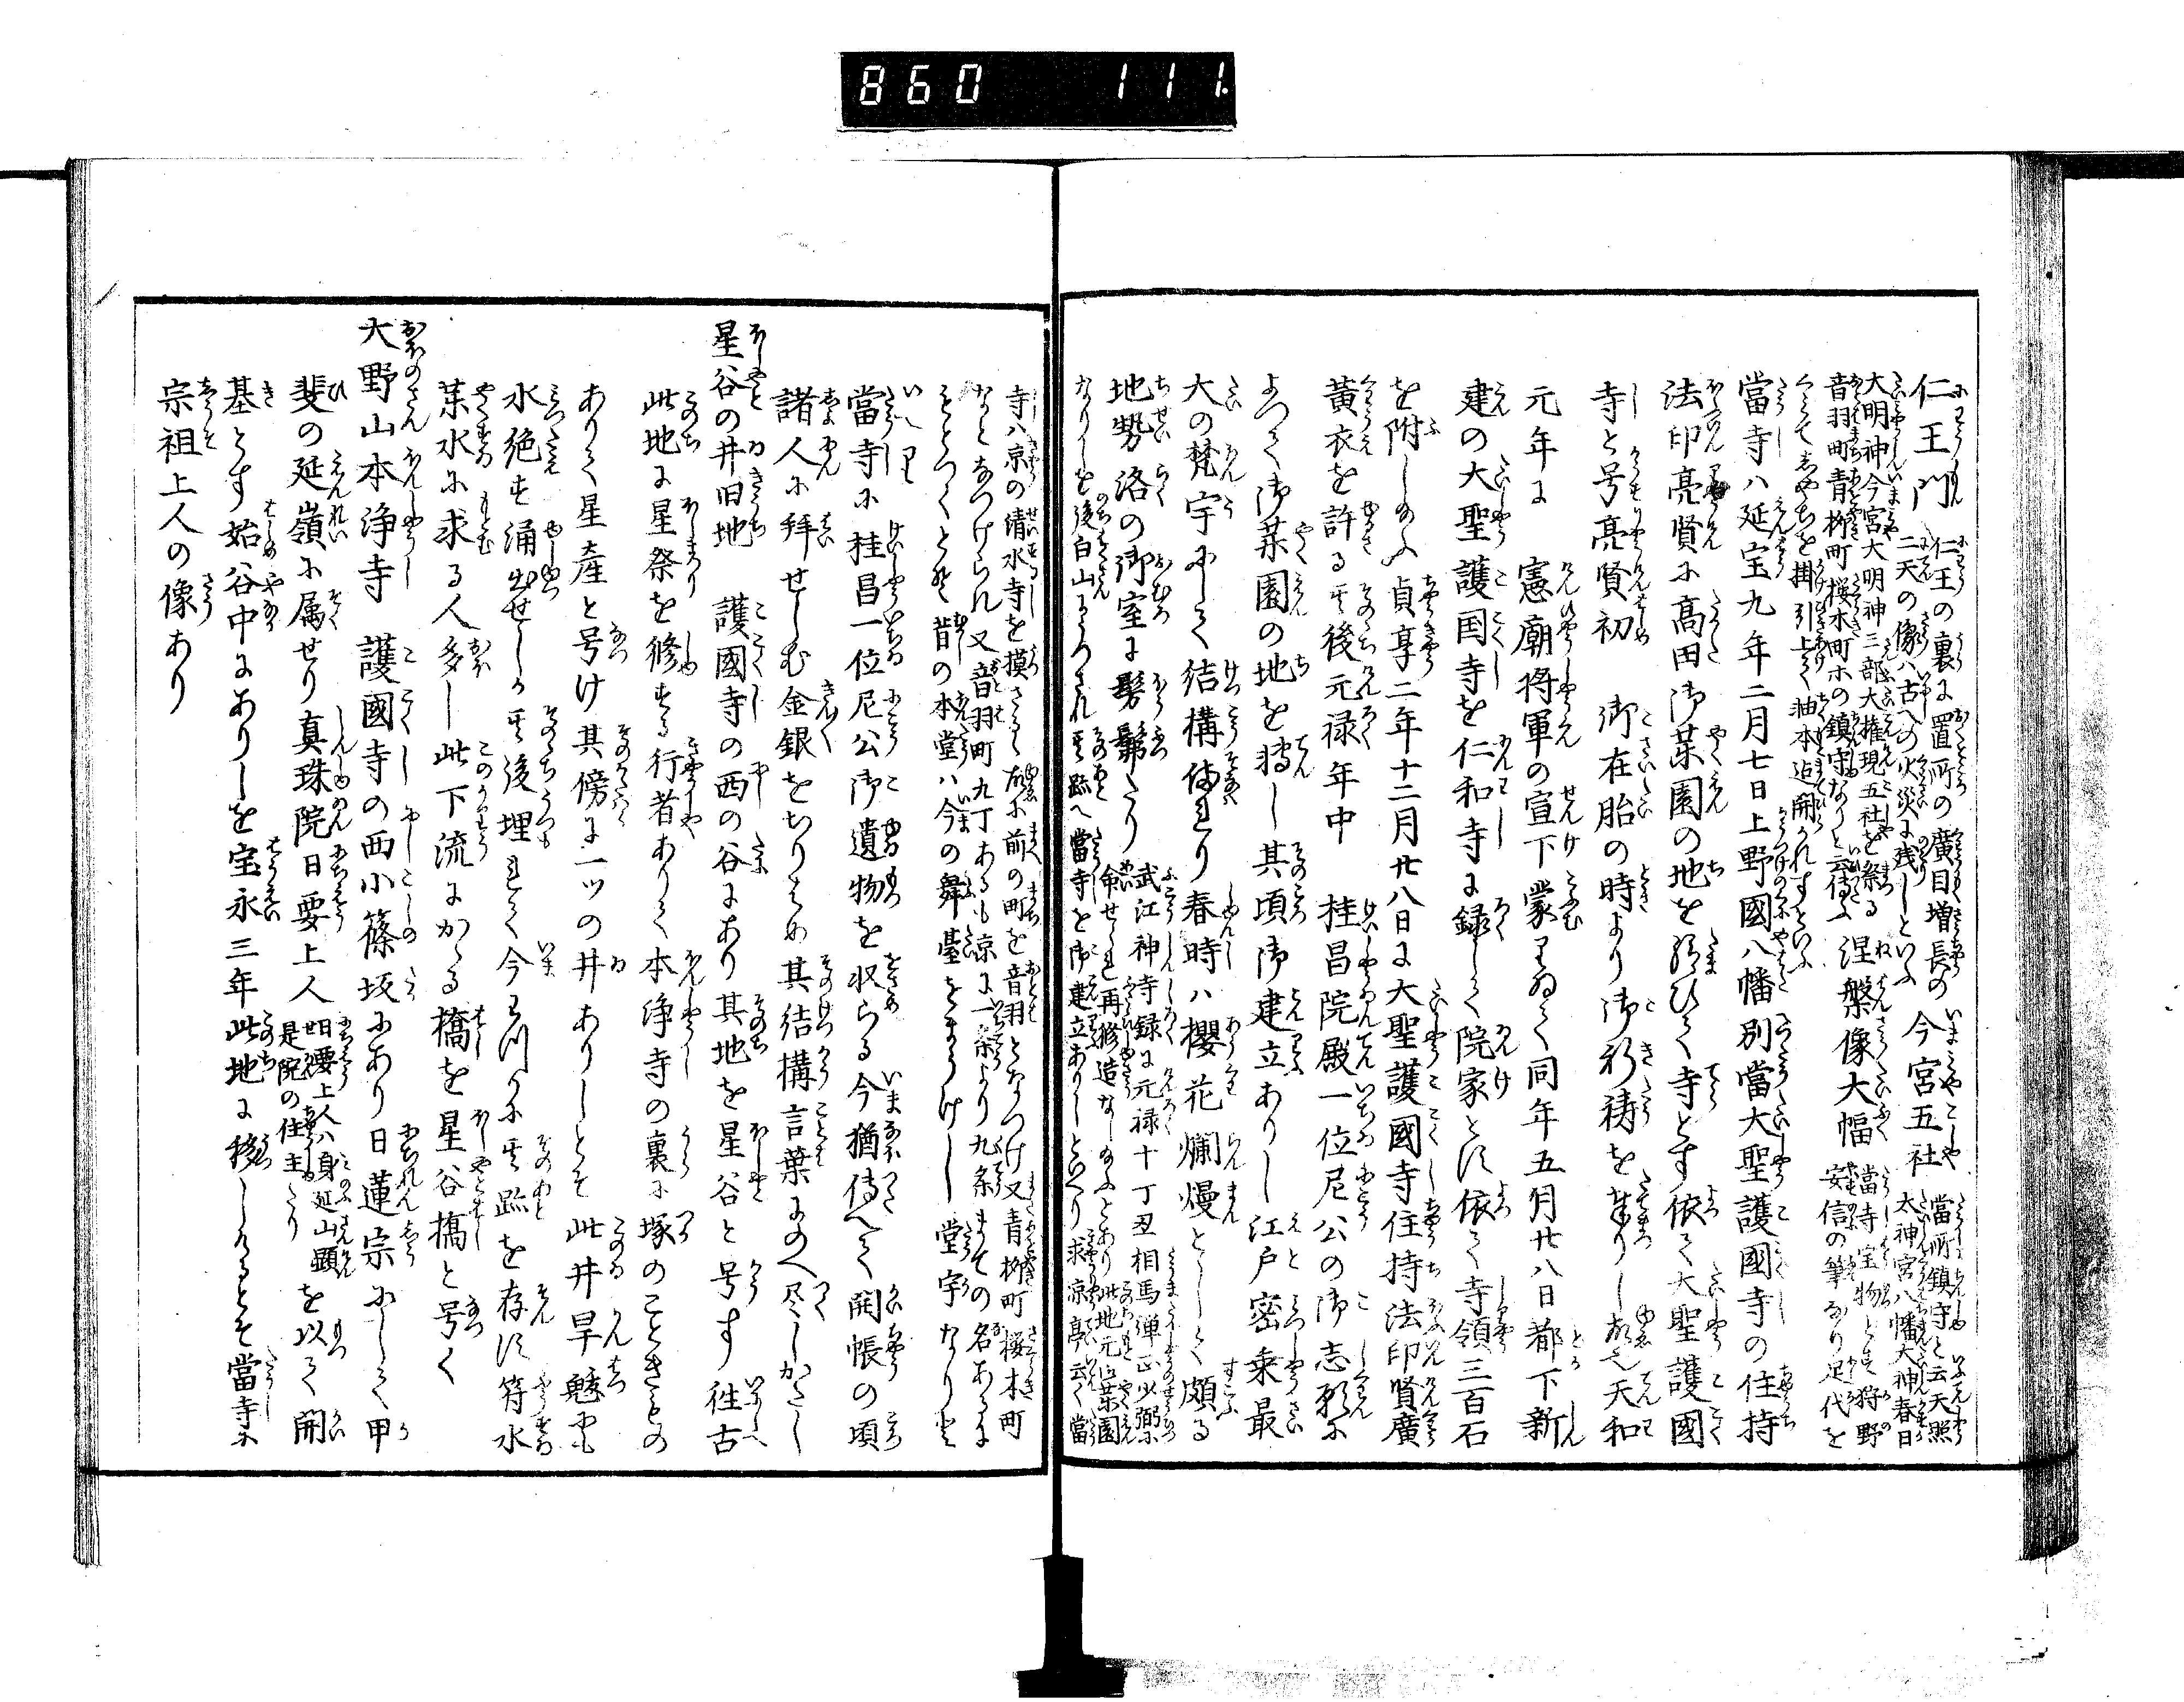 860 111.
仁王門 仁王の裏に置所の廣目増長の二天の像ハ古への火災に残しといふ 今宮五社 當所鎮守と云天照太神宮八幡大神春日
大明神今宮大明神三部大権現五社を祭る音羽町青柳町桜木町ホの鎮守なりと云傳ふ 涅槃像大幅 當寺宝物とす狩野安信の筆なり足代を
くミてしやちを掛引上る油木迠開かれすといふ
當寺ハ延宝九年二月七日上野國八幡別當大聖護國寺の住持
法印亮賢に髙田御薬園の地を給ひて寺とす依て大聖護國
寺と号亮賢初 御在胎の時より御祈祷を奉りし故也天和
元年に 憲廟将軍の宣下蒙りゐて同年五月廿八日都下新
建の大聖護国寺を仁和寺に録して院家とす依て寺領三百石
を附し給ふ貞享二年十二月廿八日に大聖護國寺住持法印賢廣
黄衣を許る其後元禄年中 桂昌院殿一位尼公の御志願に
よつて御薬園の地を轉し其頃御建立ありし江戸密乗最
大の梵宇にして結構備れり春時ハ櫻花爛熳として頗る
地勢洛の御室に髣髴たり 武江神寺録に元禄十丁丑相馬弾正少弼に命せられ再修造なし給ふとあり此地元御薬園
なりしを後白山にうつされ其跡へ當寺を御建立ありしといへり求涼亭云く當
寺ハ京の清水寺を摸さるゝ故に前の町を音羽となつけ又青柳町桜木町
なとなつけられ又音羽町九丁あるも京に一条より九条まての名あるに
もとつくとそ昔の本堂ハ今の舞臺をまうけし堂宇なりと
いへり
當寺に桂昌一位尼公御遺物を収らる今猶傳へて開帳の頃
諸人に拜せしむ金銀をちりはめ其結構言葉にのへ尽しかたし
星谷の井旧地 護國寺の西の谷にあり其地を星谷と号す徃古
此地に星祭を修する行者ありて本浄寺の裏に塚のこときもの
ありて星産と号け其傍に一ツの井ありしとそ此井旱魃にも
水絶す涌出せしか其後埋れて今わつかに其跡を存す符水
薬水に求る人多し此下流にかゝる橋を星谷橋と号く
大野山本浄寺 護國寺の西小篠坂にあり日蓮宗にして甲
斐の延嶺に属せり真珠院日要上人 日要上人ハ身延山顕世是院の住主たり を以て開
基とす始谷中にありしを宝永三年此地に移しけるとそ當寺に
宗祖上人の像あり